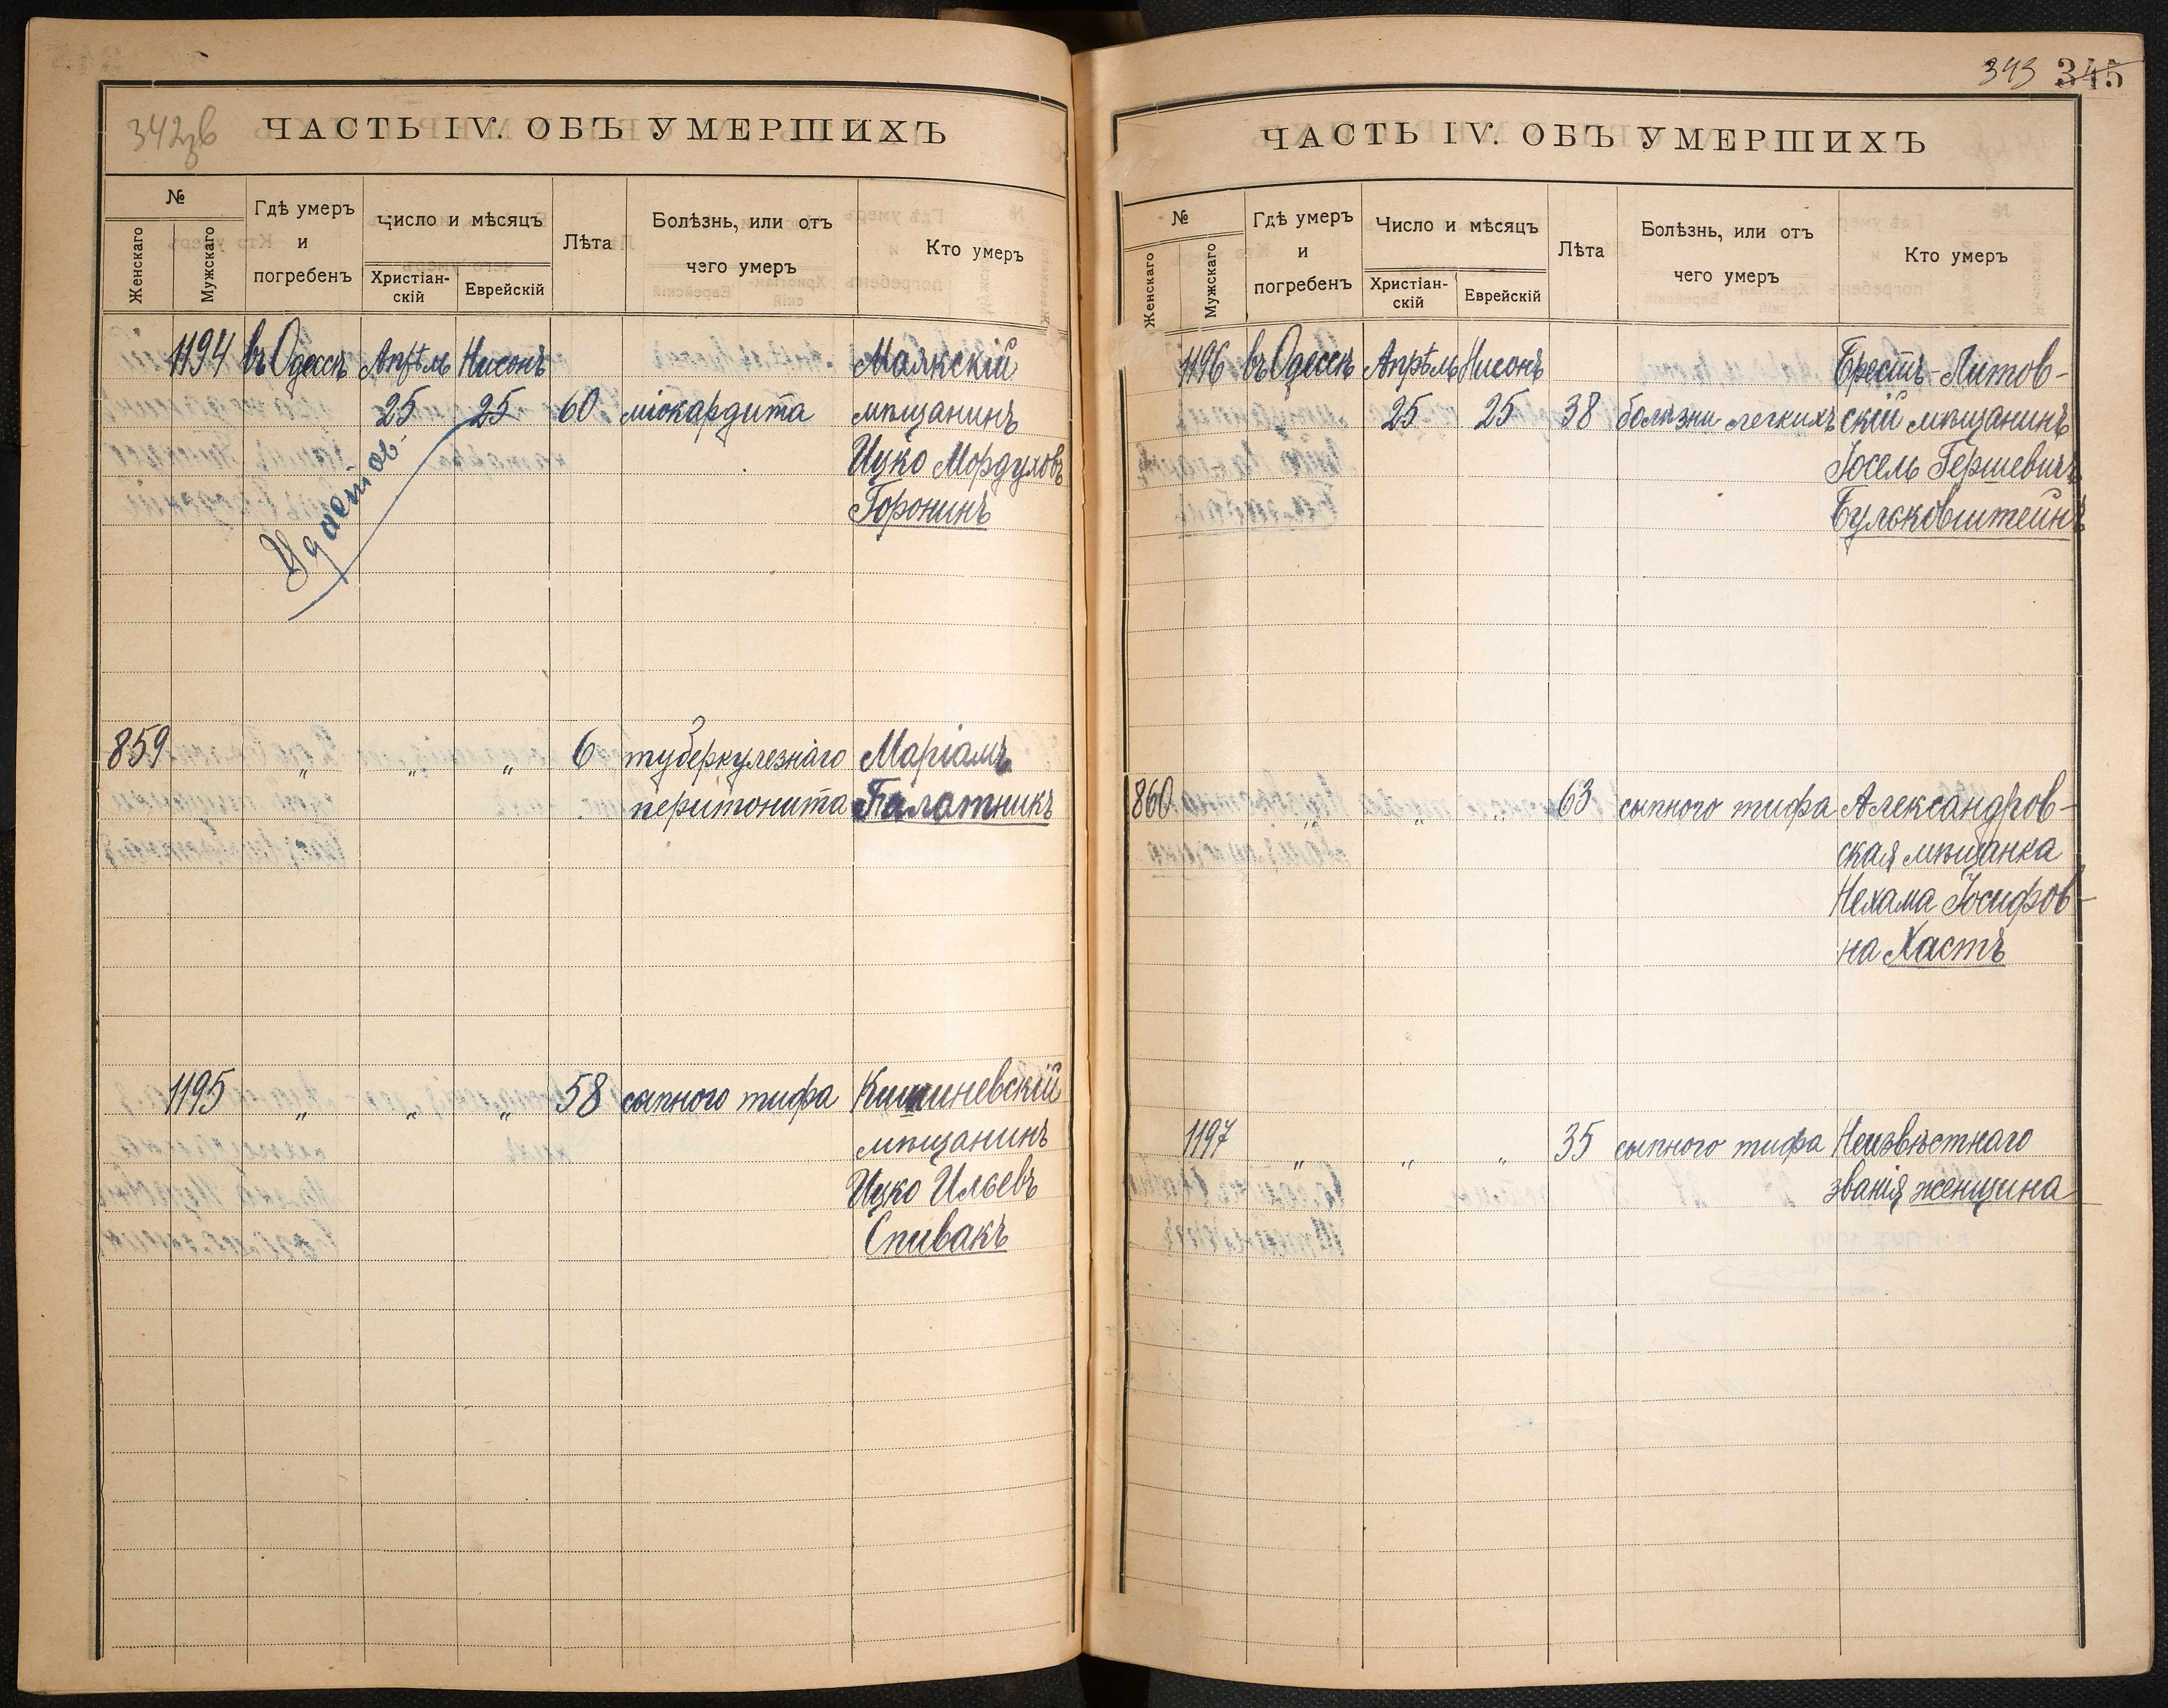 342зв
ЧАСТЬ IV. ОБЪ УМЕРШИХЪ
№
Женскаго
Мужскаго
Гдѣ умеръ и погребенъ
Число и мѣсяцъ
Христіан-скій
Еврейскій
Лѣта
Болѣзнь, или отъ чего умеръ
Кто умеръ
1194 въ Одессѣ Апрѣль Нисонъ Маякскій
25 25 60 міокардита мѣщанинъ
Ицко Мордуховъ
Горонинъ
859 " " " 6 туберкулезнаго Маріамъ
перитонита Палатникъ
1195 " " " 58 сыпного тифа Кишиневскій
мѣщанинъ
Ицко Ильевъ
Спивакъ
343 345
ЧАСТЬ IV. ОБЪ УМЕРШИХЪ
№
Женскаго
Мужскаго
Гдѣ умеръ и погребенъ
Число и мѣсяцъ
Христіан-скій
Еврейскій
Лѣта
Болѣзнь, или отъ чего умеръ
Кто умеръ
1196 въ Одессѣ Апрѣль Нисонъ Брестъ-Литов-
25 25 38 болѣзни легкихъ скій мѣщанинъ
Іосель Гершевичъ
Бульковштейнъ
860 " " " 63 сыпного тифа Александров-
ская мѣщанка
Нехама Іосифов-
на Хастъ
1197 " " " 35 сыпного тифа Неизвѣстнаго
званія женщина